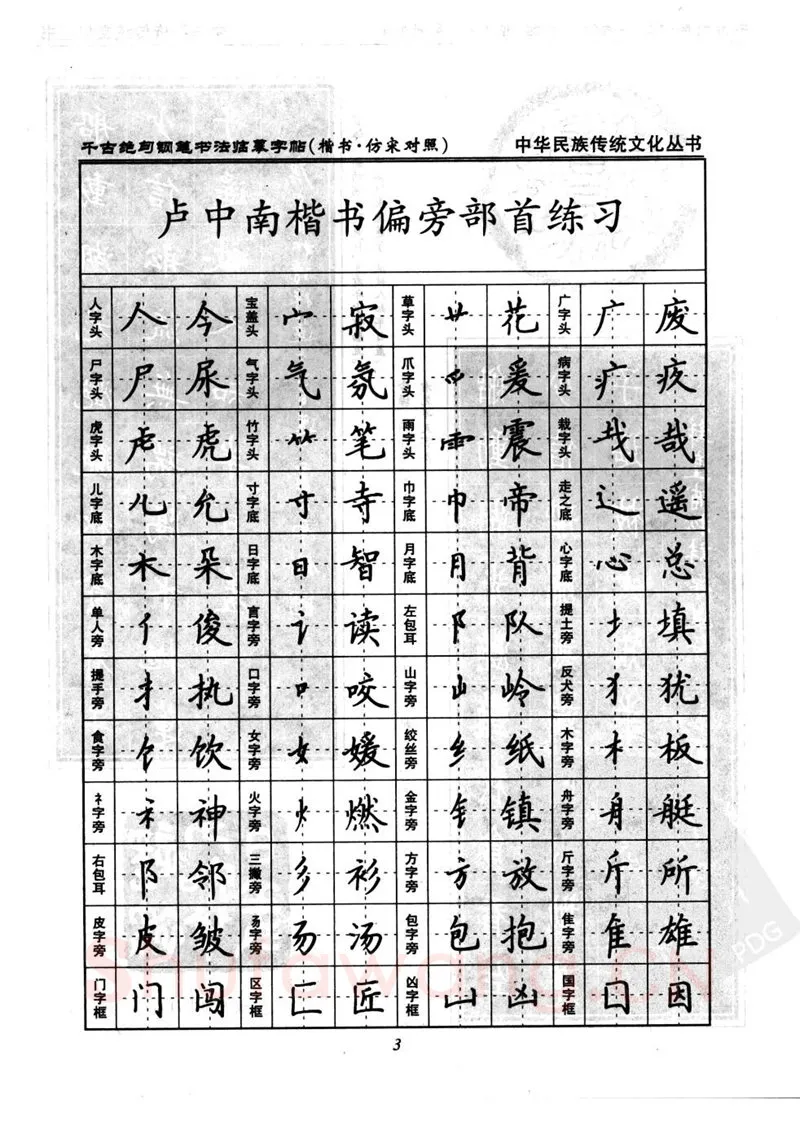 千古绝句钢笔书法临摹字帖(楷书·仿宋对照) 中华民族传统文化丛书
卢中南楷书偏旁部首练习
人字头 人 今 宝盖头 宀 寂 草字头 艹 花 广字头 广 废
尸字头 尸 尿 气字头 气 氛 爪字头 爫 爰 病字头 疒 疾
虎字头 虍 虎 竹字头 ⺮ 笔 雨字头 雨 震 栽字头 𢦏 哉
儿字底 儿 允 寸字底 寸 寺 巾字底 巾 帝 走之底 辶 遥
木字底 木 朵 日字底 日 智 月字底 月 背 心字底 心 总
单人旁 亻 俊 言字旁 讠 读 左包耳 阝 队 提土旁 土 填
提手旁 扌 执 口字旁 口 咬 山字旁 山 岭 反犬旁 犭 犹
食字旁 饣 饮 女字旁 女 媛 绞丝旁 纟 纸 木字旁 木 板
礻字旁 礻 神 火字旁 火 燃 金字旁 钅 镇 舟字旁 舟 艇
右包耳 阝 邻 三撇旁 彡 衫 方字旁 方 放 斤字旁 斤 所
皮字旁 皮 皱 汤字旁 𠃓 汤 包字旁 包 抱 隹字旁 隹 雄
门字框 门 闯 区字框 匚 匠 凶字框 凵 凶 国字框 囗 因
3
PDG